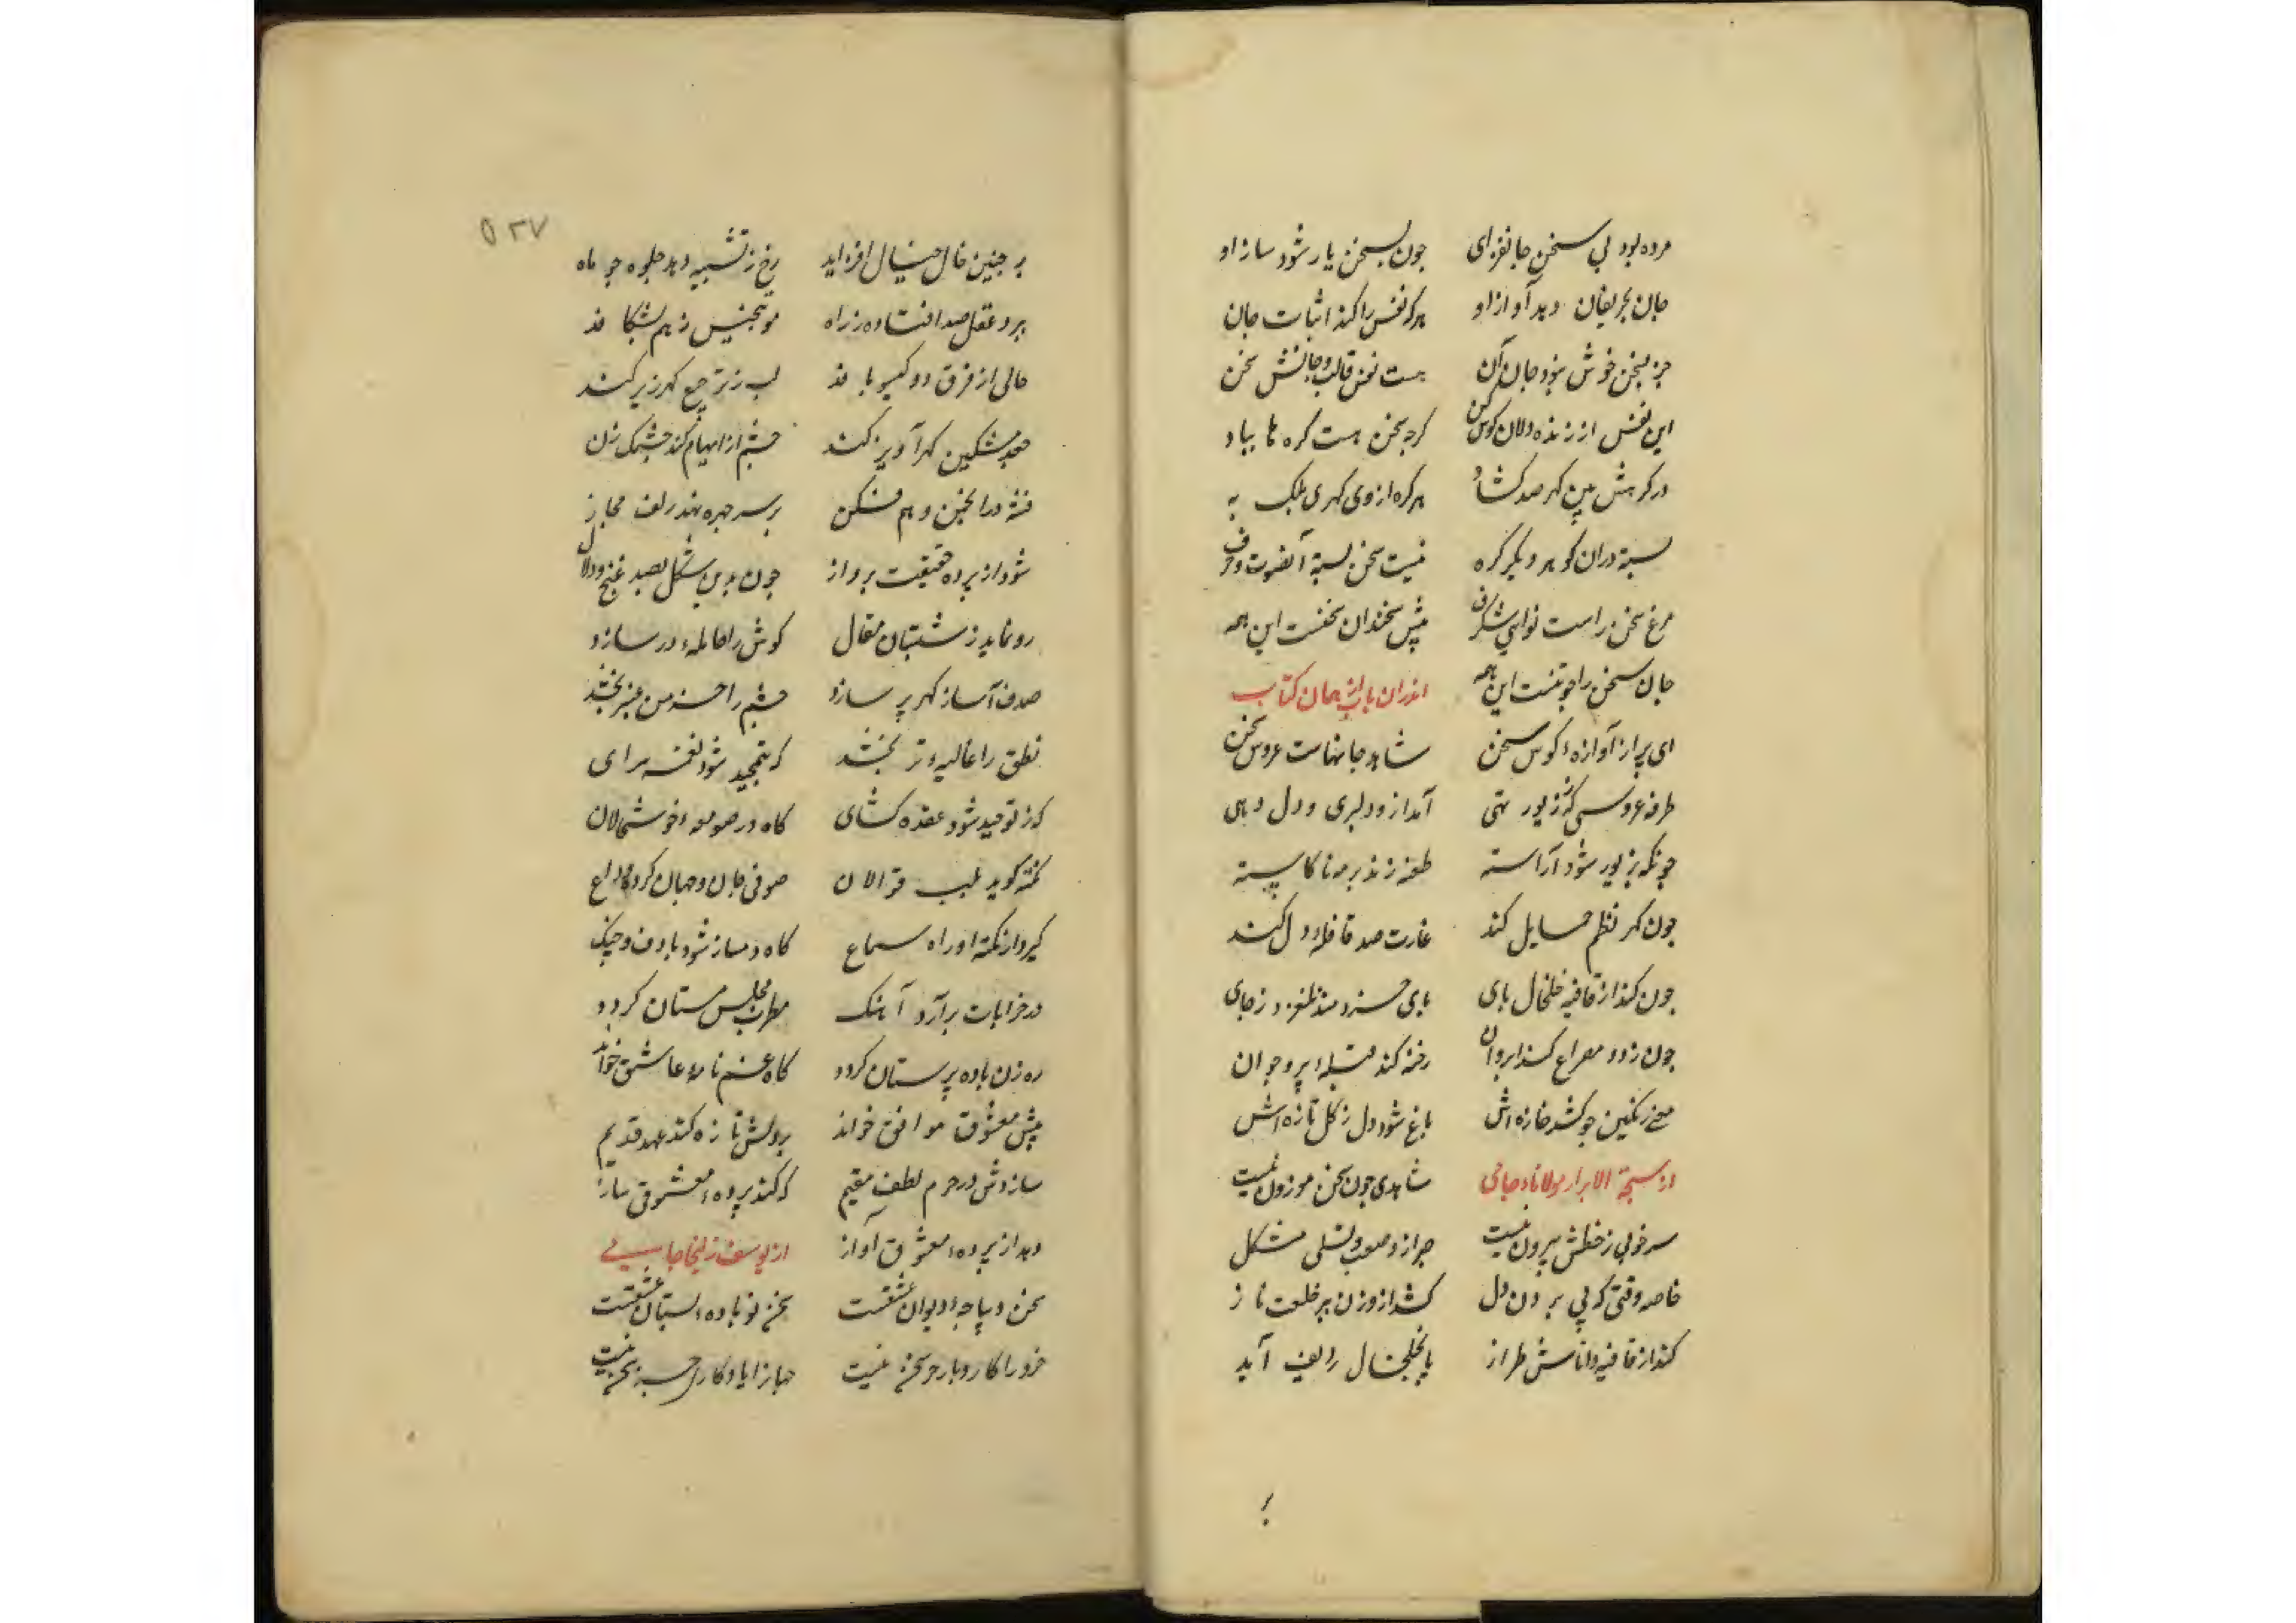 مرده بود بی سخن جانفزای   چون بسخن یار شود ساز او
جان بحریفان دهد آواز او   هرکه نفس را کند اثبات جان
جز بسخن خوش نبود جان آن   هست نفس قالب و جانش سخن
این نفس از زنده دلان گوش کن   گرچه سخن هست گره ها بباد
در گرهش بین گهر صد گشاد   هر گره از وی گهری بلک به
بسته دران گوهر دیگر گره   نیست سخن بسته آن صوت و حرف
مرغ سخن راست نوای شگرف   پیش سخندان سخنست این همه
جان سخن را چو تنست این همه   اندران باب از همان کتاب
ای پر از آوازه کوس سخن   شاهد جانهاست عروس سخن
طرفه عروسی که ز زیور تهی   آمد ازو دلبری و دل دهی
چونکه بزیور شود آراسته   طعنه زند بر مه ناکاسته
چون گهر نظم حمایل کند   غارت صد قافله دل کند
چون کند از قافیه خلخال پای   پای خردمند بلغزد ز جای
چون ز دو مصراع کند ابروان   رخنه کند قبله پیر و جوان
معنی رنگین چو کشد غازه اش   باغ شود دل ز گل تازه اش
از سبحة الابرار مولانا جامی   شاهدی چون سخن موزون نیست
سر خوبی ز خطش بیرون نیست   صبر ازو صعب و تسلی مشکل
خاصه وقتی که پی بردن دل   کشد از وزن ببر خلعت ناز
کند از قافیه دامانش طراز   پا بخلخال ردیف آید
بر
۵۲۷
بر جبین خال خیال افزاید   رخ ز تشبیه دهد جلوه چو ماه
ببرد عقل صد افتاده ز راه   مو بتجنیس ز هم بشکافد
خالی از فرق دو گیسو بافد   لب ز ترصیع گهرریز کند
جعد مشکین گهرآویز کند   چشم از ایهام کند چشمک زن
فتنه در انجمن وهم فکن   بر سر چهره نهد زلف مجاز
شود از پرده حقیقت پرداز   چون بدین شکل بصد غنج و دلال
رو نماید ز شبستان مقال   گوش را حامله در سازد
صدف آسا ز گهر پر سازد   چشم را خرمن عنبر بخشد
نطق را غالیه تر بخشد   که بتمجید شود نغمه سرای
که ز توحید شود عقده گشای   گاه در صومعه خوشحالان
نکته گوید بلب قوالان   صوفی جان و جهان کرده وداع
گیرد از نکته او راه سماع   گاه دمساز شود با دف و چنگ
در خرابات برآرد آهنگ   مطرب مجلس مستان گردد
ره زن باده پرستان گردد   گاه غم نامه عاشق خواند
پیش معشوق موافق خواند   بر دلش تازه کند عهد قدیم
سازدش در حرم لطف مقیم   که کند پرده معشوق ساز
دهد از پرده معشوق آواز   از یوسف زلیخا جامی
سخن دیباچه دیوان عشقست   سخن نوباده بستان عشقست
خرد را کار و باری جز سخن نیست   جهانرا یادگاری جز سخن نیست